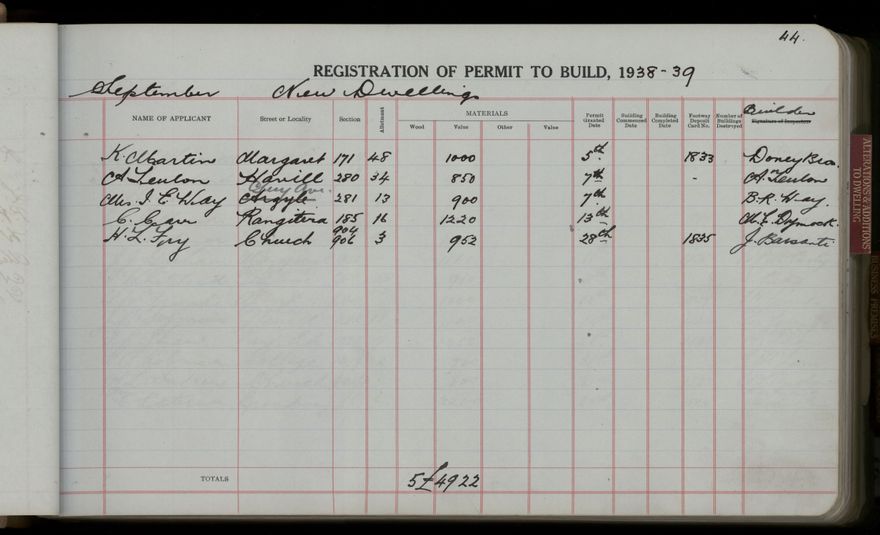 44.
REGISTRATION OF PERMIT TO BUILD, 1938-39
September New Dwellings
NAME OF APPLICANT Street or Locality Section Allotment MATERIALS Wood Value Other Value Permit Granted Date Building Commenced Date Building Completed Date Footway Deposit Card No. Number of Buildings Destroyed Builder Signature of Inspectors
K. Martin Margaret 171 48 1000 5th 1833 Doney Bros.
A. Fenton Havill 280 34 850 7th - A. Fenton
Guy Ave.
Mrs. I. E. Way Argyle 281 13 900 7th B. R. Way.
C. Rangitera 185 16 1220 13th Dymock.
904
H. L. Fry Church 906 3 952 28th 1835 J. Bassanti
TOTALS 5 £4922
ALTERATIONS & ADDITIONS
TO DWELLING
BUSINESS PREMISES